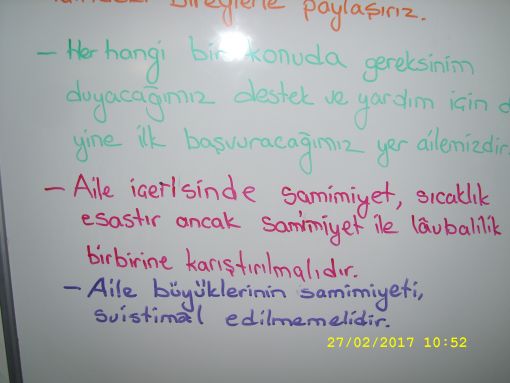 bireylerle paylaşırız.
- Her hangi bir konuda gereksinim
duyacağımız destek ve yardım için
yine ilk başvuracağımız yer ailemizdir.
- Aile içerisinde samimiyet, sıcaklık
esastır ancak samimiyet ile lâubalilik
birbirine karıştırılmalıdır.
- Aile büyüklerinin samimiyeti,
suistimâl edilmemelidir.
27/02/2017 10:52